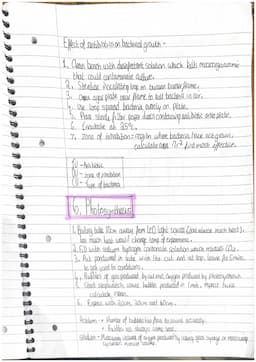 Effect of antibiotics on bacterial growth -
1. Clean bench with disinfectant solution which kills microorganisms
that could contaminate culture.
2. Sterilise inoculating loop in bunsen burner flame.
3. Open agar plate near flame to kill bacteria in air.
4. Use loop spread bacteria evenly on plate.
5. Place sterile filter paper discs containing antibiotic onto plate.
6. Incubate at 25°C.
7. Zone of inhibition: region where bacteria have not grown,
calculate area πr² find most effective.
IV - Antibiotic
DV - zone of inhibition
CV - Type of bacteria
6. Photosynthesis
1. Boiling tube 10cm away from LED light source (
too much heat would change temp of experiment.
2. Fill with sodium hydrogen carbonate solution which releases CO₂.
3. Put pondweed in tube with the cut end at top. Leave for 5 mins
to get used to conditions.
4. Bubbles of gas produced by cut end. Oxygen produced by photosynthesis.
5. Use stopwatch, count bubbles produced in 1 min, repeat twice
calculate mean.
6. Repeat with 20cm, 30cm and 40cm.
Problem • Number of bubbles too fast to count accurately.
• Bubbles not always same size.
Solution - Measuring volume of oxygen produced by